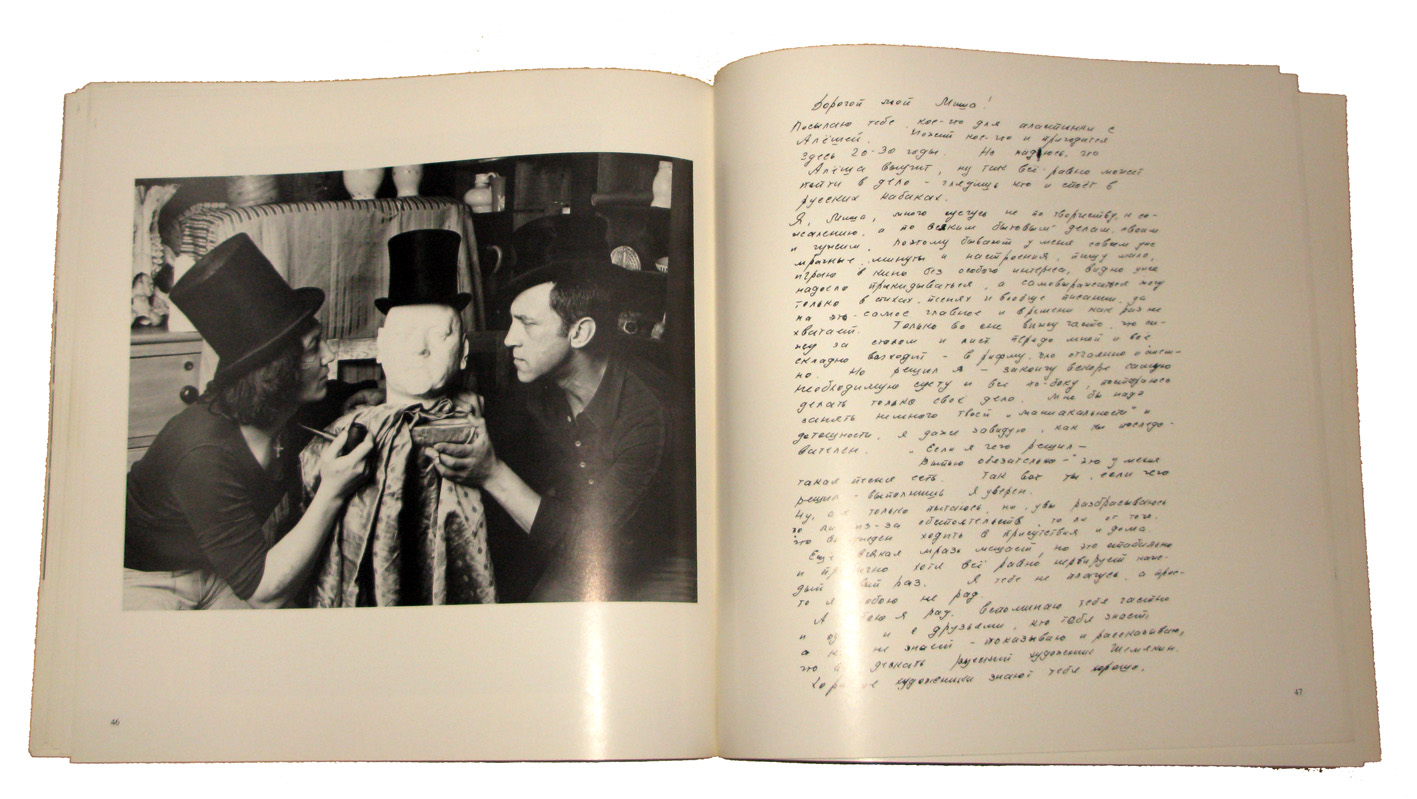 46
Дорогой мой Миша!
Посылаю тебе кое-что для пластинки с
Алёшей. Может кое-что и пригодится
Здесь 20-30 годы. Но надеюсь, что
Алёша выучит, ну так всё равно может
пойти в дело - глядишь кто и споёт в
русских кабаках.
Я, Миша, много суечусь не по творчеству, к со-
жалению, а по всяким бытовым делам, своим
и чужим. Поэтому бывают у меня совсем уже
мрачные минуты и настроения, пишу мало,
играю в кино без особого интереса, видно уже
надоело прикидываться, а самовыражаться могу
только в стихах, песнях и вообще писании, да
на это - самое главное и времени как раз не
хватает. Только во сне вижу часто, что си-
жу за столом и лист передо мной и все
складно выходит - в рифму, зло отчаянно и смеш-
но. Но решил я - закончу вскоре самую
необходимую суету и все по-боку, постараюсь
делать только своё дело. Мне бы надо
занять немного твоей "маниакальности" и
дотошности, я даже завидую, как ты последо-
вателен. "Если я чего решил -
Выпью обязательно -" это у меня
такая песня есть. Так вот ты, если чего
решил - выполнишь я уверен.
Ну, а я только пытаюсь, но, увы разбрасываюсь
то ли из-за обстоятельств, то ли от того,
что вынужден ходить в присутствия и дома.
Ещё всякая мразь мешает, но это стабильно
и привычно хотя всё равно нервирует каж-
дый раз. Я тебе не плачусь, а прос-
то я собою не рад.
А тобою я рад. Вспоминаю тебя часто
и один и с друзьями, кто тебя знает,
а кто не знает - показываю и рассказываю,
что русский художник Шемякин.
Хорошие художники знают тебя хорошо,
47